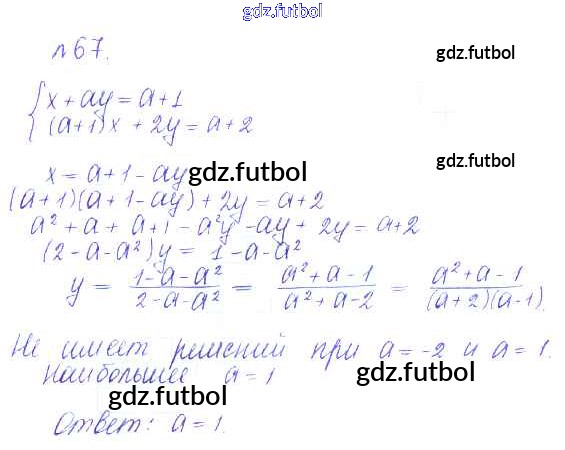 gdz.futbol
№67.
gdz.futbol
{ x + ay = a + 1
(a+1)x + 2y = a + 2
gdz.futbol
x = a + 1 - ay
gdz.futbol
(a+1)(a+1-ay) + 2y = a + 2
a² + a + a + 1 - a²y - ay + 2y = a + 2
(2 - a - a²)y = 1 - a - a²
y = (1 - a - a²)/(2 - a - a²) = (a² + a - 1)/(a² + a - 2) = (a² + a - 1)/((a+2)(a-1)).
Не имеет решений при a = -2 и a = 1.
Наибольшее a = 1
gdz.futbol
gdz.futbol
Ответ: a = 1.